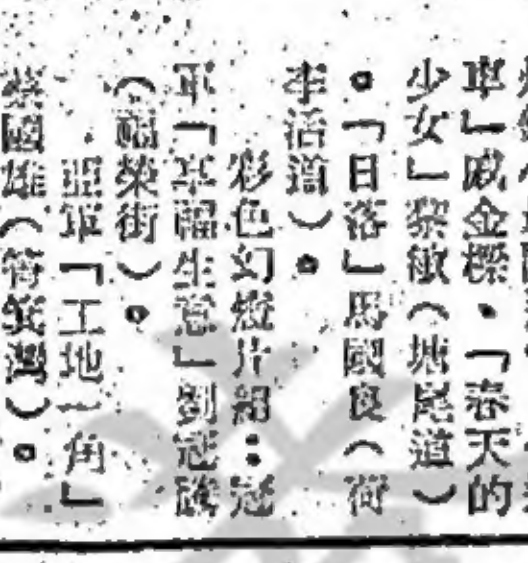 車」威金標。「春天的
少女」黎敏（塘尾道）
。「日落」馬國良（荷
李活道）。
彩色幻燈片組：冠
軍「幸福生意」劉冠
（福榮街）。
亞軍「工地一角」
蔡國雄（筲箕灣）。